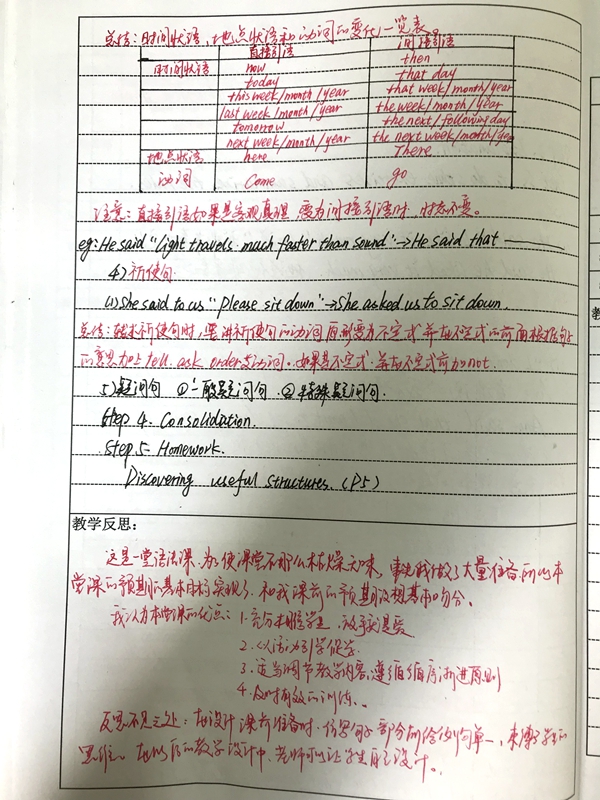 总结:时间状语,地点状语和动词的变化一览表
直接引语 间接引语
时间状语 now then
today that day
this week/month/year that week/month/year
last week/month/year the week/month/year
tomorrow the next/following day
next week/month/year the next week/month/year
地点状语 here There
动词 Come go
注意:直接引语如果是客观真理,变为间接引语时,时态不变。
eg: He said "Light travels much faster than sound" → He said that ———
4) 祈使句
(1) She said to us "Please sit down" → She asked us to sit down.
总结:转述祈使句时,要讲祈使句的动词原形变为不定式,并在不定式的前面根据句子
的意思加上 tell, ask, order等动词。如果是否定式,并在不定式前加not.
5) 疑问句 ①一般疑问句 ②特殊疑问句.
Step 4. Consolidation.
Step 5. Homework.
Discovering useful structures. (P5)
教学反思:
这是一堂语法课,为了使课堂不那么枯燥无味,事先我做了大量准备,所以本
堂课的预期的基本目标实现了,和我课前的预期设想基本吻合。
我认为本堂课的优点: 1.充分相信学生,放手就是爱
2.以活动引学促学
3.适当调节教学内容,遵循循序渐进原则
4.及时有效的训练.
反思不足之处:在设计课前准备时,仿写句子部分所给例句单一,束缚了学生的
思维。在以后的教学设计中,老师可以让学生自己设计。